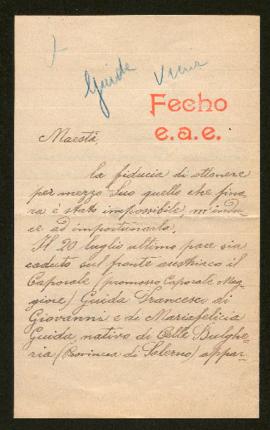 Guida
Fecho
e.a.e.
Maestà,
la fiducia di ottenere
per mezzo Suo quello che fino-
ra è stato impossibile, m'indu-
ce ad importunarLa.
Il 20 luglio ultimo pare sia
caduto sul fronte austriaco il
Caporale (promosso Caporale Mag-
giore) Guida Francesco di
Giovanni e di Mariafelicia
Guida, nativo di Celle Bulghe-
ria (Provincia di Salerno) appar-